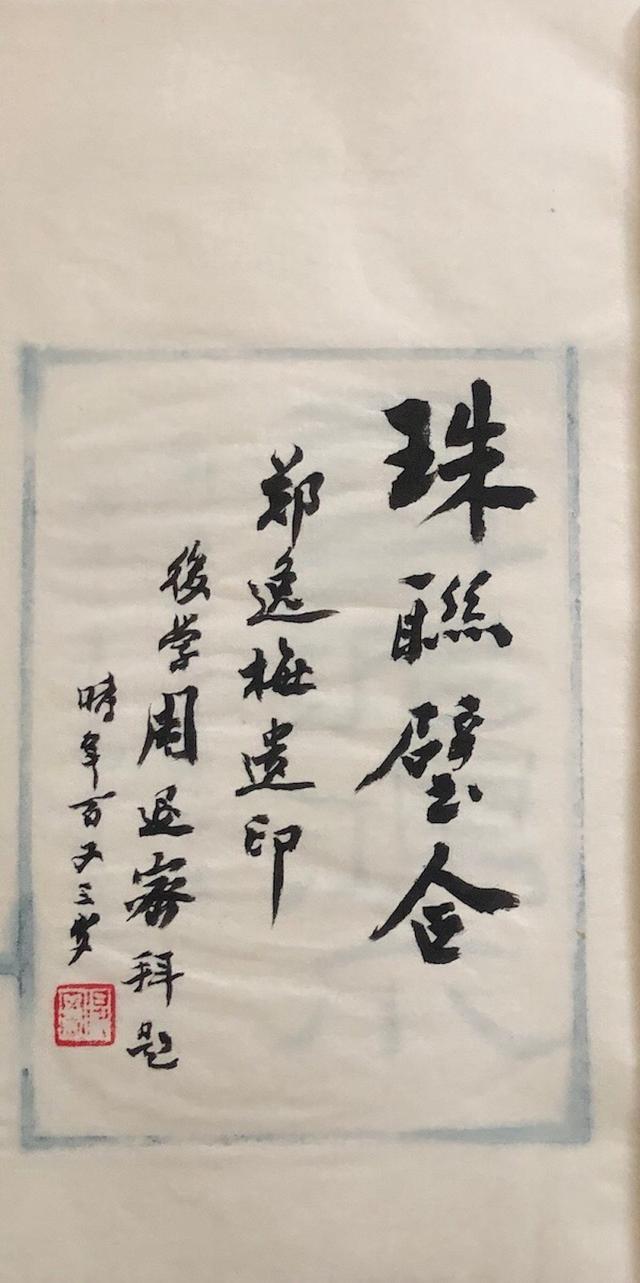 珠聯璧合
郑逸梅遗印
後学周退密拜题
時年百又三岁